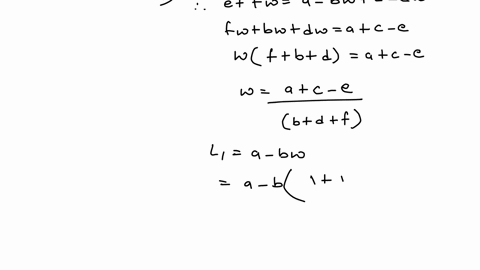 ∴ e + fw = a - bw
fw + bw + dw = a + c - e
w(f + b + d) = a + c - e
w = a + c - e / (b + d + f)
L₁ = a - bw
= a - b(